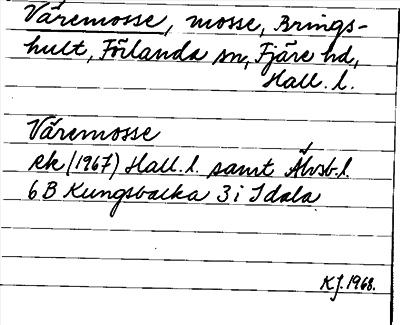 Våremosse, mosse, Brings-
hult, Förlanda sn, Fjäre hd,
Hall. l.
Våremosse
ek (1967) Hall. l. samt Älvsb. l.
6 B Kungsbacka 3 i Idala
KJ. 1968.